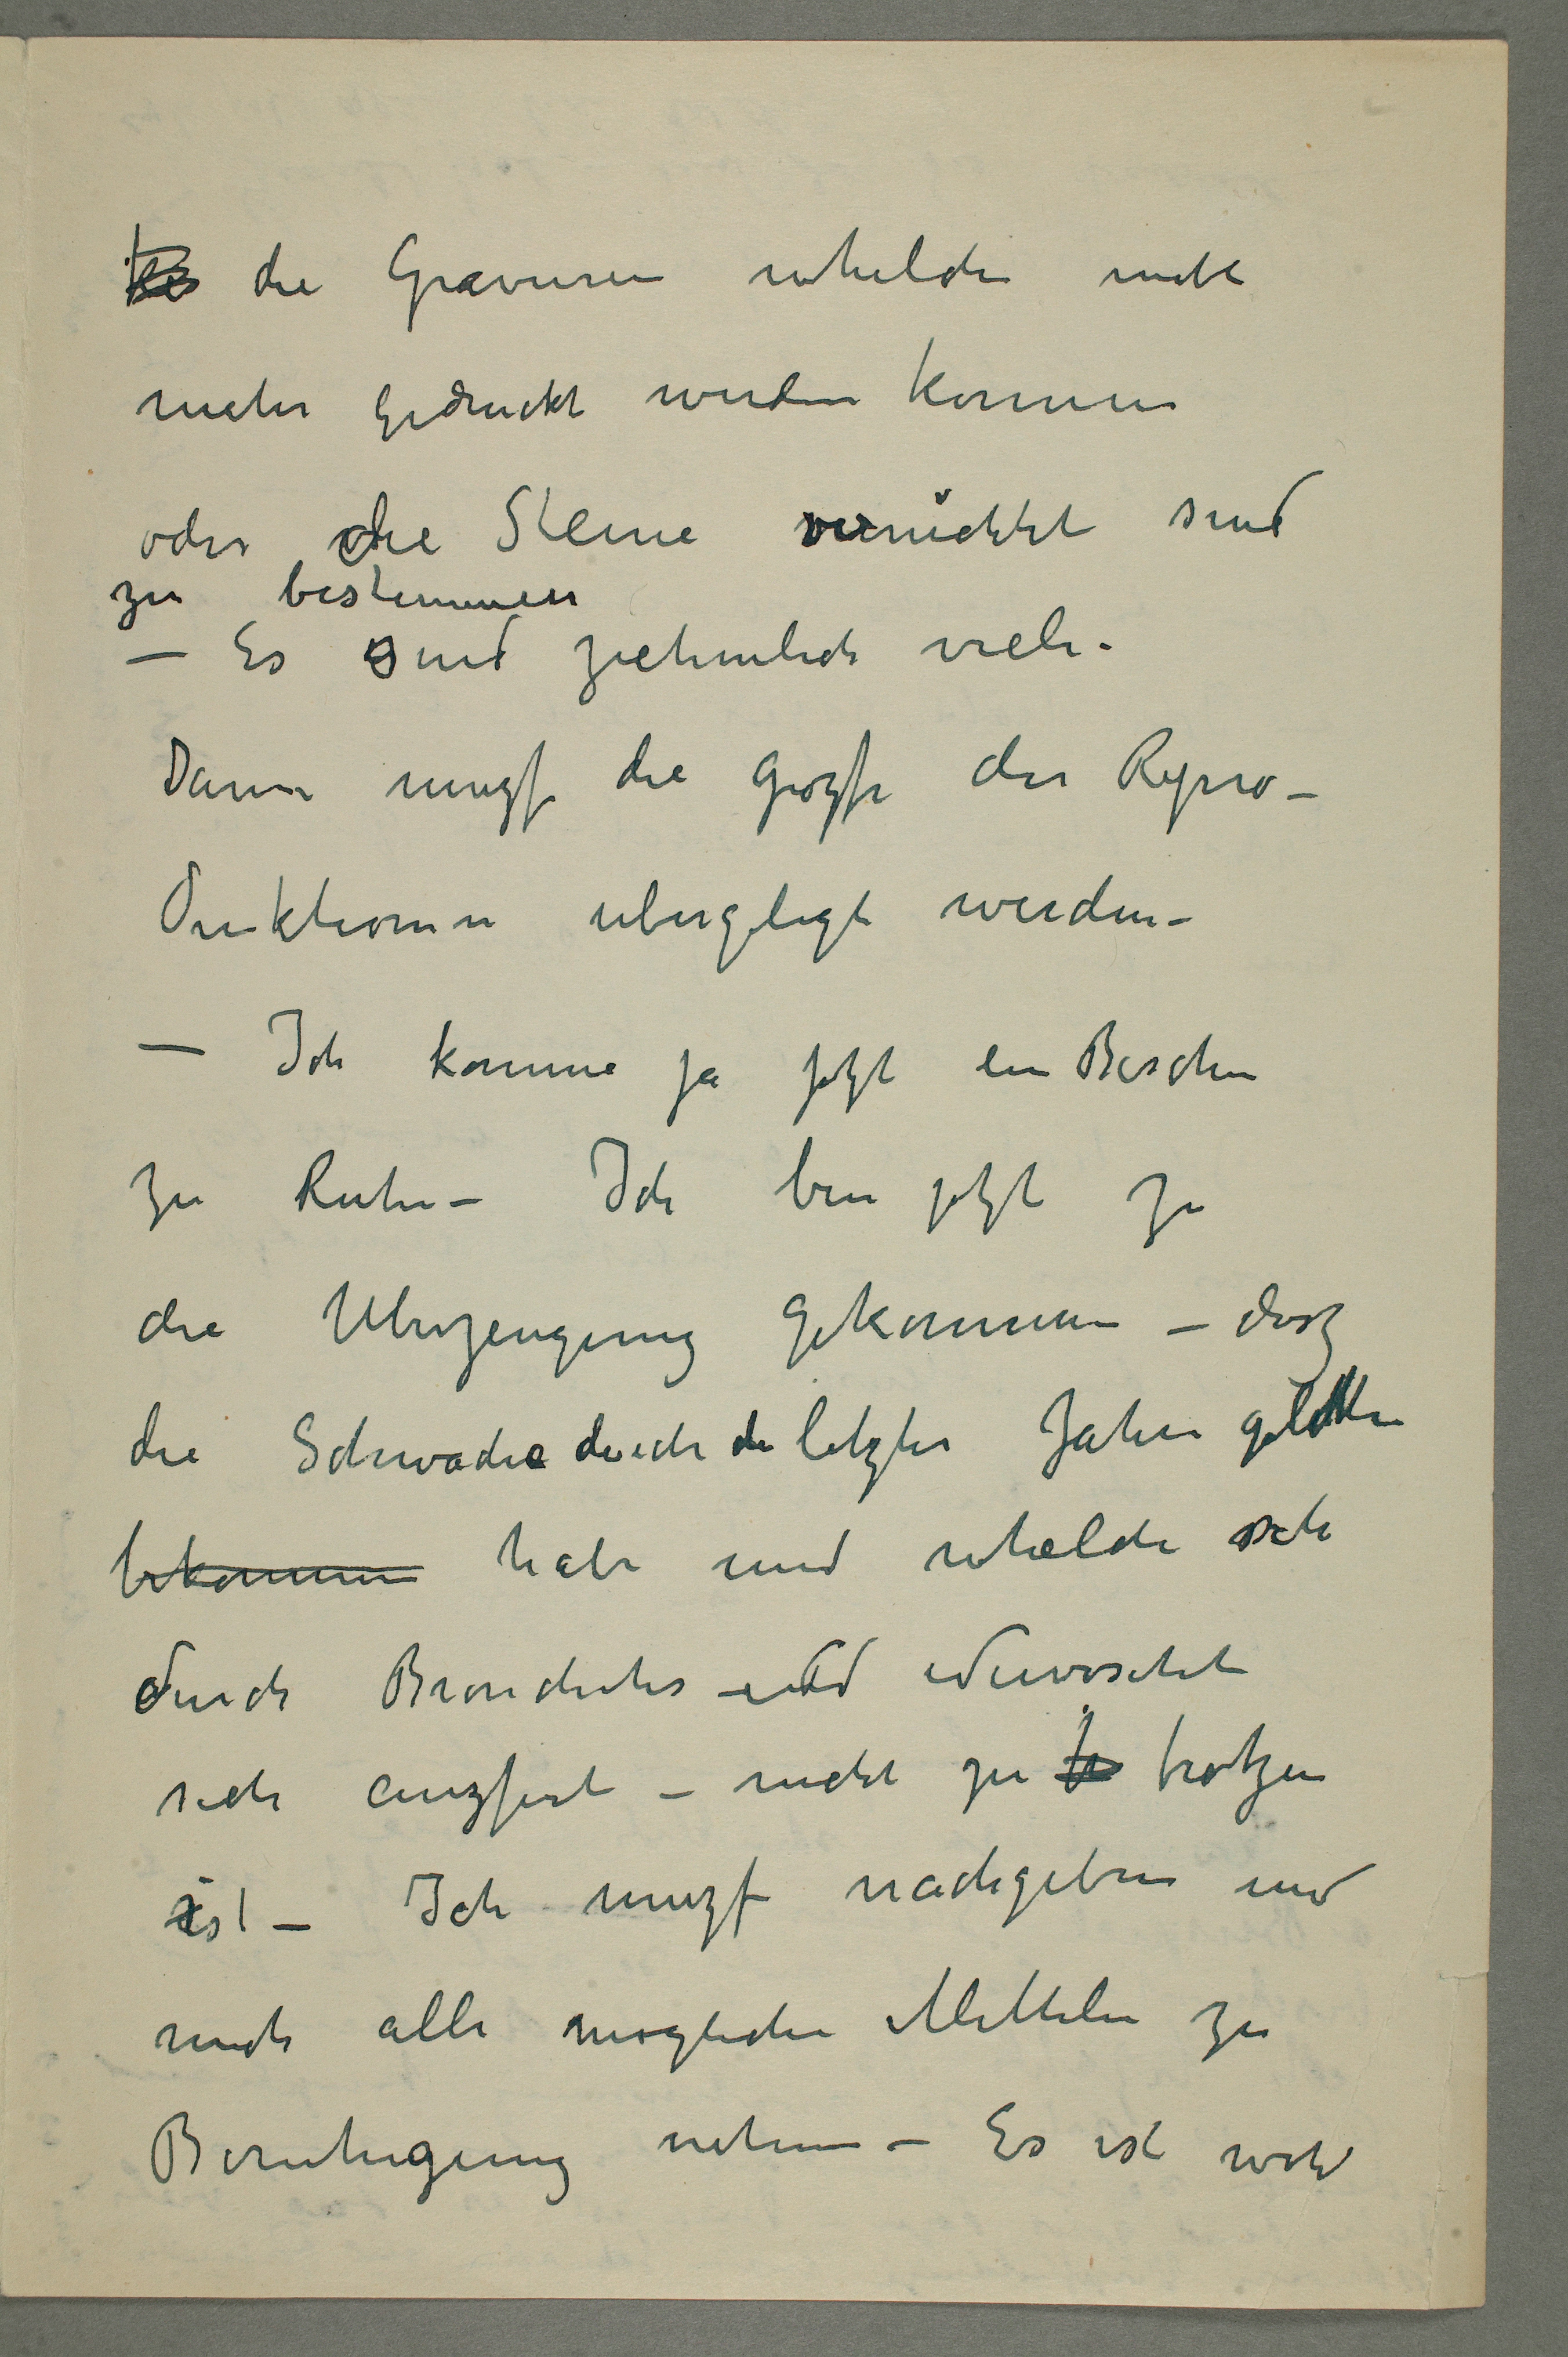 die Gravuren whelche nicht
mehr gedruckt werden konnen
oder die Steine vernichtet sind
zu bestimmen
– Es sind ziehmlich viele.
Dann muzs die Grözse der Repro-
duktionen uberglegt werden –
– Ich komme ja jetzt ein Bischen
zu Ruhe – Ich bin jetzt zu
die Uberzeugung gekommen – dasz
die Schwäche durch die letzter Jahre gelitten
bekommen habe und whelche sich
durch Bronchites und
sich auzsert – nicht zu trotzen
ist – Ich muzs nachgeben und
mich alle mögliche Mitteln zu
Beruhigung nehmen – Es ist wohl